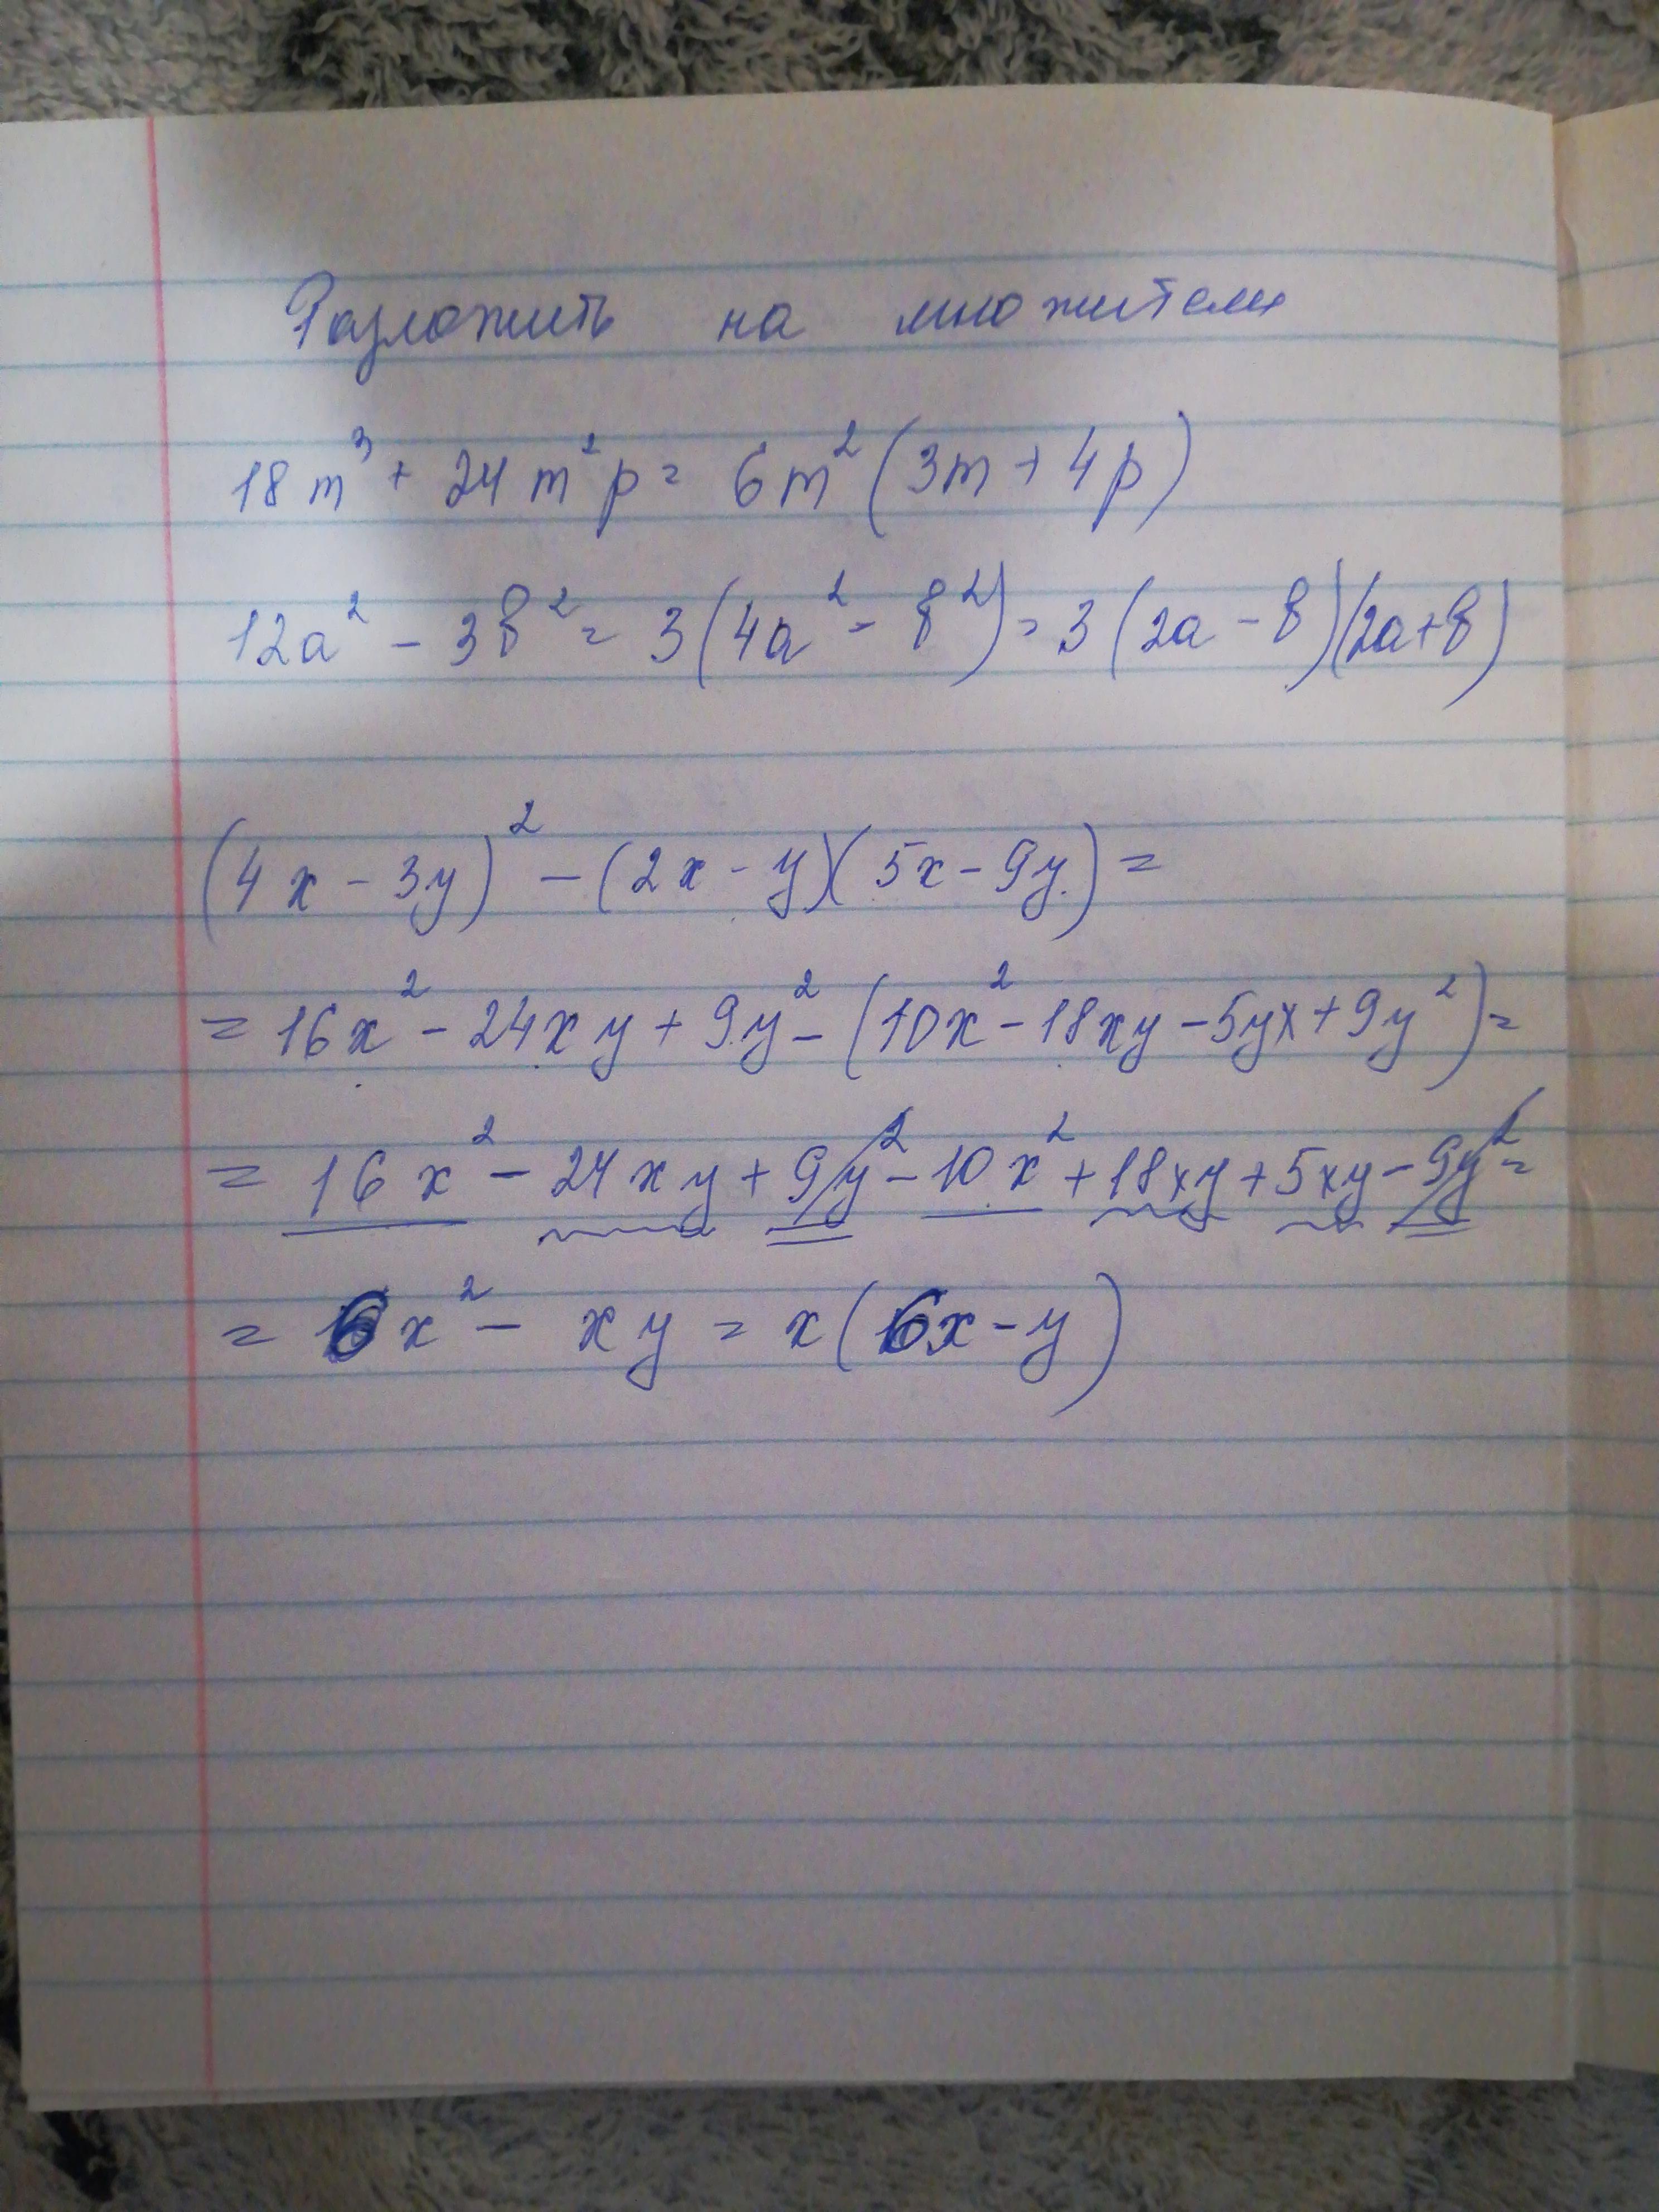 Разложить на множители
18m³ + 24m²p = 6m²(3m + 4p)
12a² - 3в² = 3(4a² - в²) = 3(2a - в)(2a+в)
(4x - 3y)² - (2x - y)(5x - 9y) =
= 16x² - 24xy + 9y² - (10x² - 18xy - 5yx + 9y²) =
= 16x² - 24xy + 9y² - 10x² + 18xy + 5xy - 9y² =
= 6x² - xy = x(6x - y)